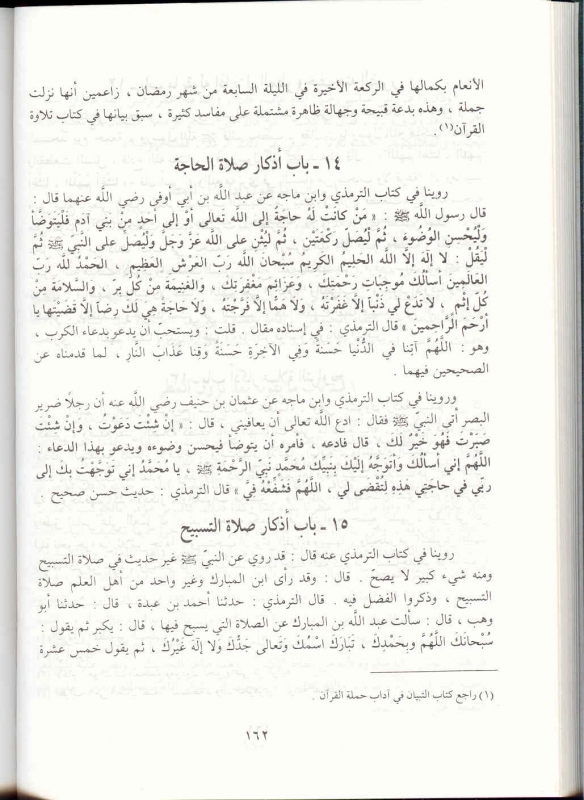 الأنعام بكمالها في الركعة الأخيرة في الليلة السابعة من شهر رمضان ، زاعمين أنها نزلت
جملة ، وهذه بدعة قبيحة وجهالة ظاهرة مشتملة على مفاسد كثيرة ، سبق بيانها في كتاب تلاوة
القرآن(١) .
١٤ ـ باب أذكار صلاة الحاجة
روينا في كتاب الترمذي وابن ماجه عن عبد اللَّه بن أبي أوفى رضي اللَّه عنهما قال :
قال رسول اللَّه ﷺ : « مَنْ كانَتْ لَهُ حاجَةٌ إلى اللَّه تَعالى أوْ إلى أحَدٍ مِنْ بَنِي آدَمَ فَلْيَتَوَضَّأ
وَلْيُحْسِنِ الوُضُوءَ ، ثُمَّ لْيُصَلّ رَكْعَتَيْنِ ، ثُمَّ لْيُثْنِ على اللَّهِ عَزّ وجَلّ وَلْيُصَلّ على النَّبِيّ ﷺ ثُمَّ
لْيَقُلْ : لا إلهَ إلَّا اللَّهُ الحَلِيمُ الكَرِيمُ سُبْحَانَ اللَّهِ رَبّ العَرْشِ العَظِيمِ ، الحَمْدُ للَّهِ رَبّ
العَالَمِينَ أسألُكَ مُوجِباتِ رَحْمَتِكَ ، وَعَزَائمَ مَغْفِرَتِكَ ، والغَنِيمَةَ مِنْ كُلّ بِرّ ، والسَّلامَةَ مِنْ
كُلّ إثْمٍ ، لا تَدَعْ لي ذَنْباً إلَّا غَفَرْتَهُ ، وَلا هَمًّا إلَّا فَرَّجْتَهُ ، وَلا حاجَةً هِيَ لَكَ رِضاً إلَّا قَضَيْتَها يا
أرْحَمَ الرَّاحِمِينَ » قال الترمذي : في إسناده مقال . قلت : ويستحبّ أن يدعو بدعاء الكرب ،
وهو : اللَّهُمَّ آتِنا في الدُّنْيا حَسَنَةً وفِي الآخِرَةِ حَسَنَةً وَقِنا عَذَابَ النَّارِ ، لما قدمناه عن
الصحيحين فيهما .
وروينا في كتاب الترمذي وابن ماجه عن عثمان بن حنيف رضي اللَّه عنه أن رجلًا ضرير
البصر أتى النبيّ ﷺ فقال : ادع اللَّه تعالى أن يعافيني ، قال : « إنْ شِئْتَ دَعَوْتُ ، وَإنْ شِئْتَ
صَبَرْتَ فَهُوَ خَيْرٌ لَكَ ، قال فادعه ، فأمره أن يتوضأ فيحسن وضوءه ويدعو بهذا الدعاء :
اللَّهُمَّ إني أسألُكَ وأتَوَجَّهُ إلَيْكَ بِنَبِيِّكَ مُحَمَّدٍ نَبِيّ الرَّحْمَةِ ﷺ ، يا مُحَمَّدُ إني تَوَجَّهْتُ بكَ إلى
رَبّي في حاجَتِي هَذِهِ لِتُقْضَى لي ، اللَّهُمَّ فَشَفِّعْهُ فِيَّ » قال الترمذي : حديث حسن صحيح .
١٥ ـ باب أذكار صلاة التسبيح
روينا في كتاب الترمذي عنه قال : قد روي عن النبيّ ﷺ غير حديث في صلاة التسبيح
ومنه شيء كبير لا يصحّ . قال : وقد رأى ابن المبارك وغير واحد من أهل العلم صلاة
التسبيح ، وذكروا الفضل فيه . قال الترمذي : حدثنا أحمد بن عبدة ، قال : حدثنا أبو
وهب ، قال : سألت عبد اللَّه بن المبارك عن الصلاة التي يسبح فيها ، قال : يكبر ثم يقول :
سُبْحَانَكَ اللَّهُمَّ وبِحَمْدِكَ ، تَبَارَكَ اسْمُكَ وَتَعالى جَدُّكَ وَلا إلَهَ غَيْرُكَ ، ثم يقول خمس عشرة
(١) راجع كتاب التبيان في آداب حملة القرآن .
١٦٢